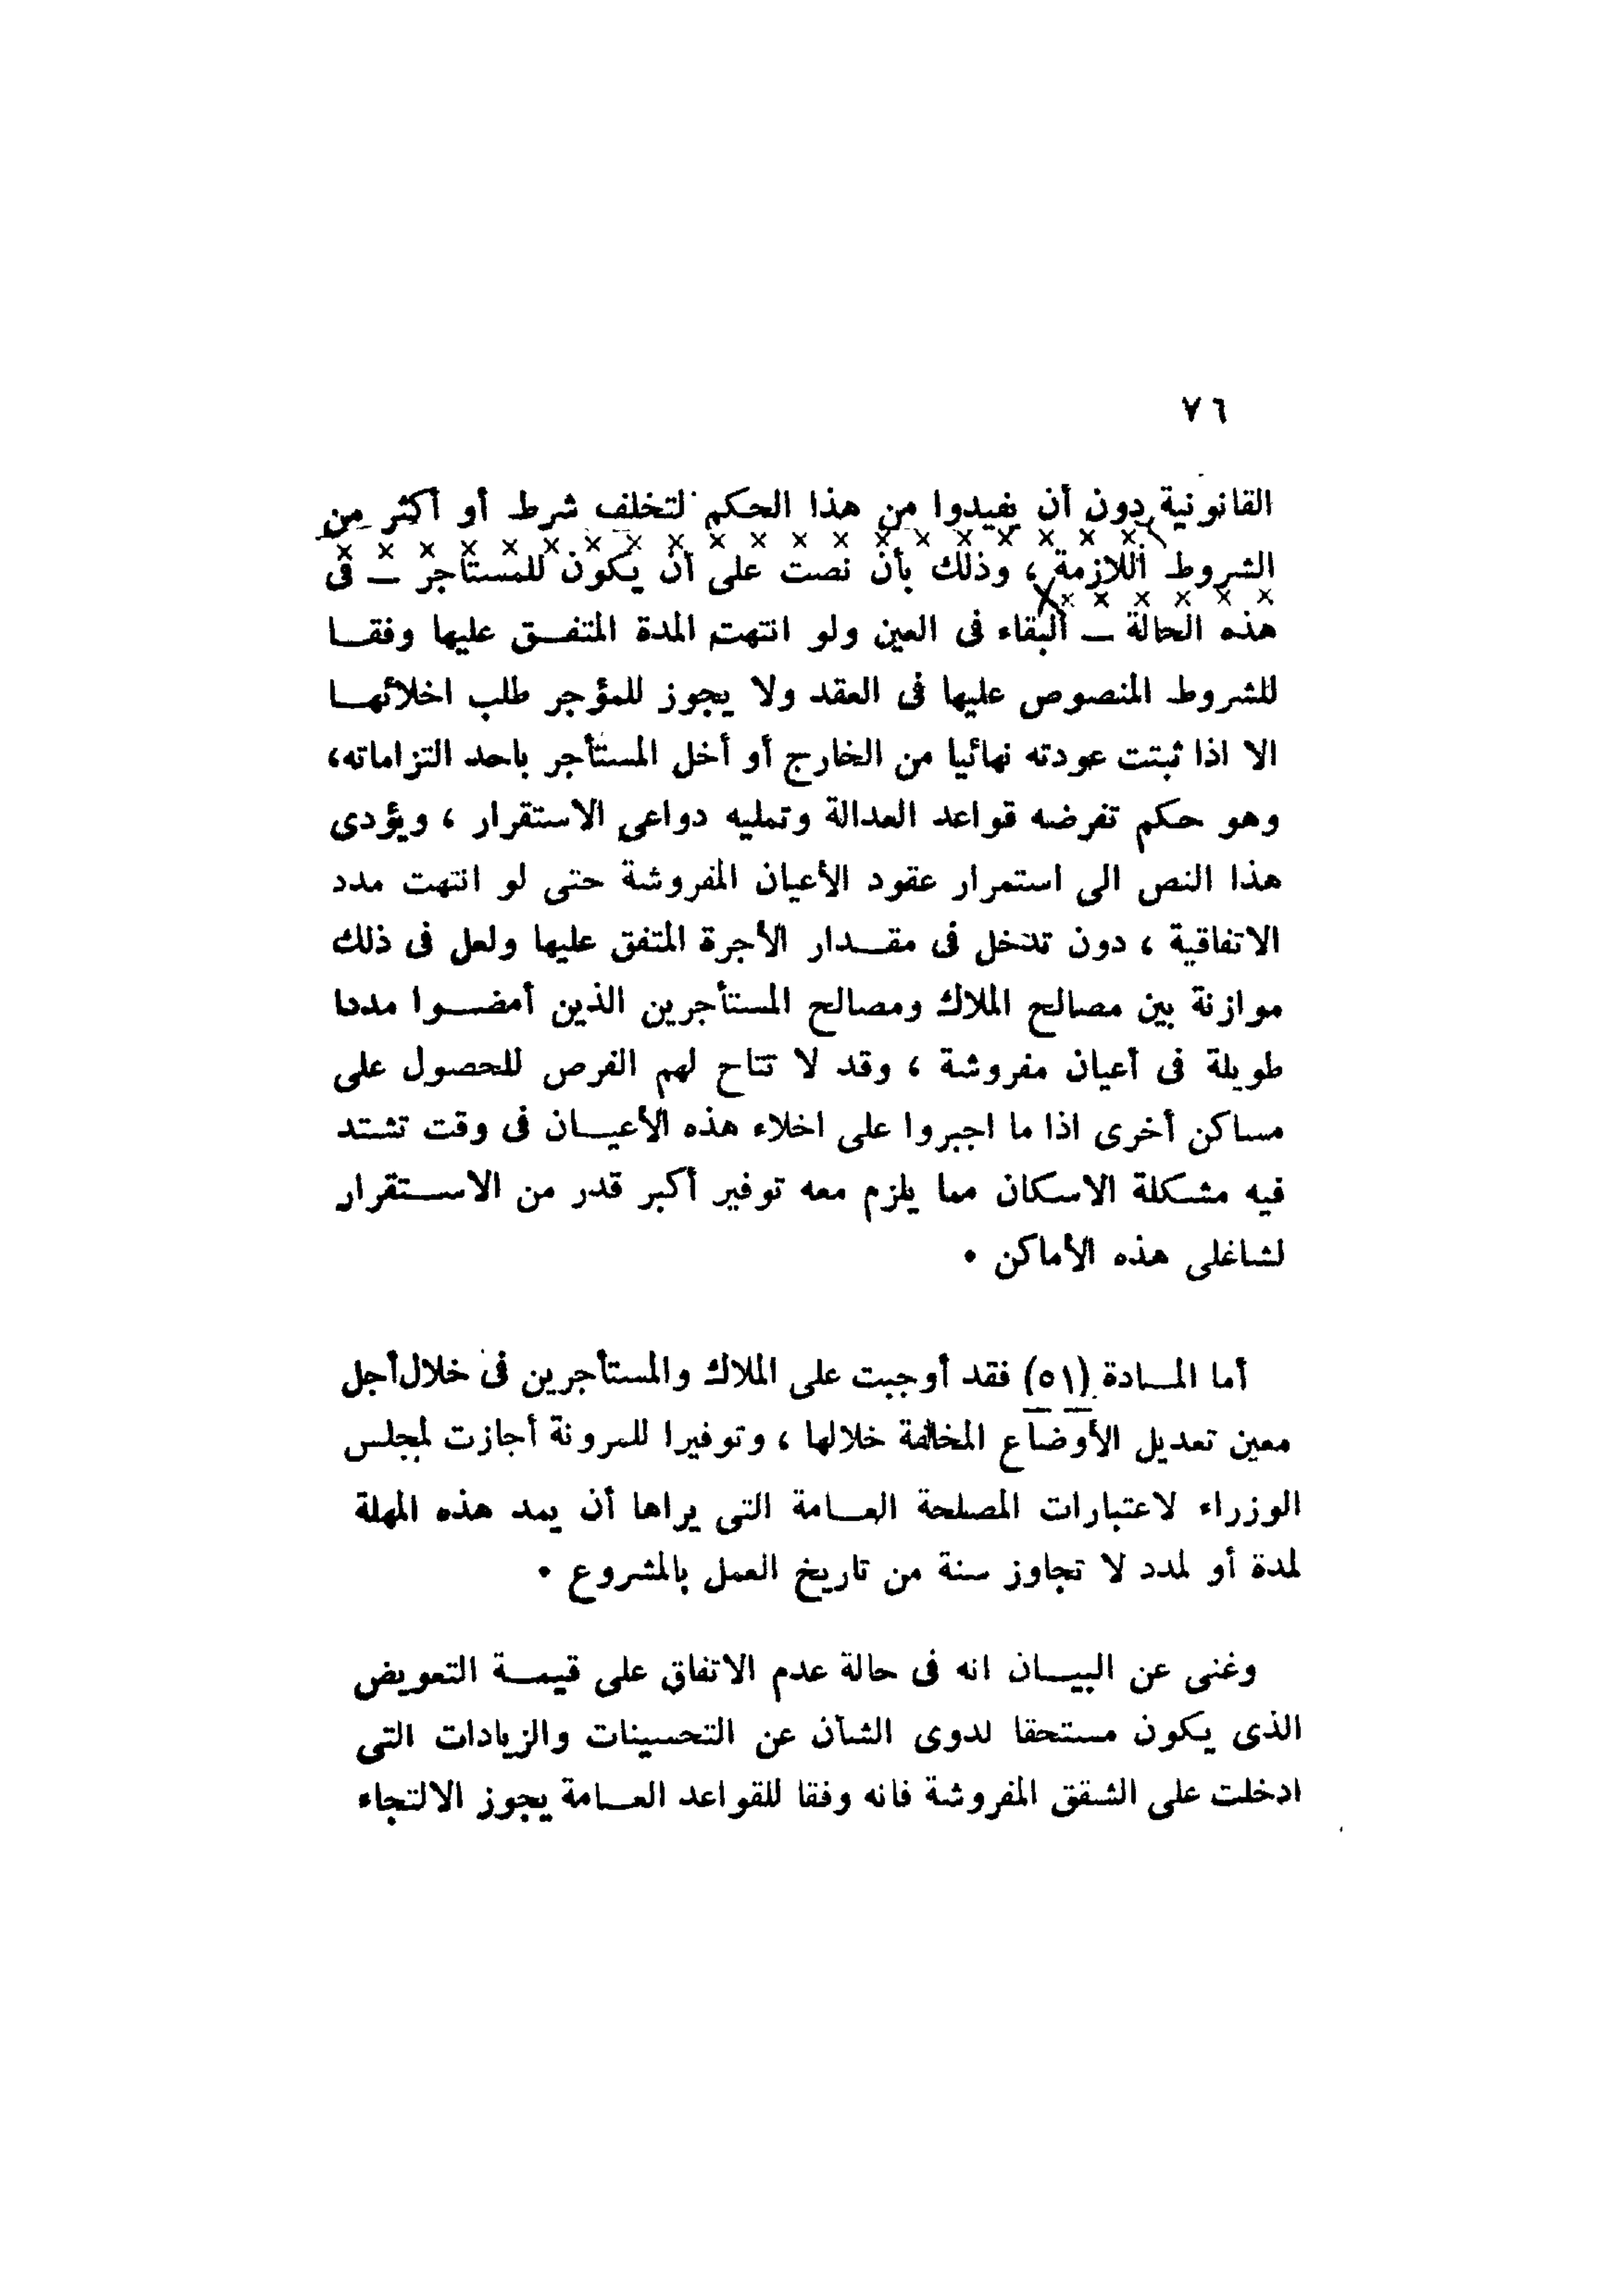 ٧٦
القانونية دون أن يفيدوا من هذا الحكم لتخلف شرط أو أكثر من
الشروط اللازمة ، وذلك بأن نصت على أن يكون للمستأجر ــ فى
هذه الحالة ــ البقاء فى العين ولو انتهت المدة المتفق عليها وفقا
للشروط المنصوص عليها فى العقد ولا يجوز للمؤجر طلب اخلائها
الا اذا ثبتت عودته نهائيا من الخارج أو أخل المستأجر باحد التزاماته،
وهو حكم تفرضه قواعد العدالة وتمليه دواعى الاستقرار ، ويؤدى
هذا النص الى استمرار عقود الأعيان المفروشة حتى لو انتهت مدد
الاتفاقية ، دون تدخل فى مقدار الأجرة المتفق عليها ولعل فى ذلك
موازنة بين مصالح الملاك ومصالح المستأجرين الذين أمضوا مددا
طويلة فى أعيان مفروشة ، وقد لا تتاح لهم الفرص للحصول على
مساكن أخرى اذا ما اجبروا على اخلاء هذه الأعيان فى وقت تشتد
فيه مشكلة الاسكان مما يلزم معه توفير أكبر قدر من الاستقرار
لشاغلى هذه الأماكن ٠
أما المادة (٥١) فقد أوجبت على الملاك والمستأجرين فى خلال أجل
معين تعديل الأوضاع المخالفة خلالها ، وتوفيرا للمرونة أجازت لمجلس
الوزراء لاعتبارات المصلحة العامة التى يراها أن يمد هذه المهلة
لمدة أو لمدد لا تجاوز سنة من تاريخ العمل بالمشروع ٠
وغنى عن البيان انه فى حالة عدم الاتفاق على قيمة التعويض
الذى يكون مستحقا لدوى الشأن عن التحسينات والزيادات التى
ادخلت على الشقق المفروشة فانه وفقا للقواعد العامة يجوز الالتجاء